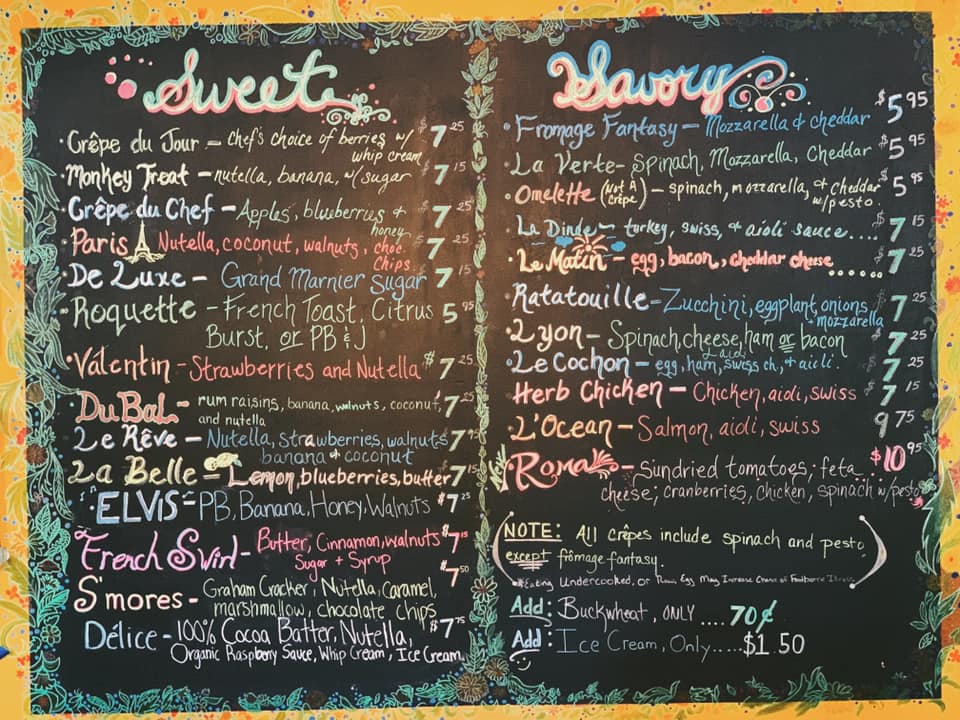 Sweet
Crêpe du Jour – Chef's choice of berries w/ $7.25
whip cream
Monkey Treat – nutella, banana, w/ sugar $7.15
Crêpe du Chef – Apples, blueberries & $7.25
honey
Paris Nutella, coconut, walnuts, choc. $7.25
chips.
De Luxe – Grand Marnier Sugar $7.15
Roquette – French Toast, Citrus 5.95
Burst, or PB & J
Valentin – Strawberries and Nutella $7.25
Du Bal – rum raisins, banana, walnuts, coconut, 7.25
and nutella
Le Rêve – Nutella, strawberries, walnuts
banana & coconut
La Belle – Lemon, blueberries, butter 7.15
"ELVIS" – PB, Banana, Honey, Walnuts $7.25
French Swirl – Butter, Cinnamon, walnuts $7.15
Sugar + Syrup
S'mores – Graham Cracker, Nutella, Caramel, $7.50
marshmallow, chocolate chips
Délice – 100% Cocoa Batter, Nutella, $7.75
Organic Raspberry Sauce, Whip Cream, Ice Cream
Savory
Fromage Fantasy – Mozzarella & cheddar $5.95
La Verte – Spinach, Mozzarella, Cheddar $5.95
Omelette (Not A crêpe) – spinach, mozzarella, & cheddar $5.95
w/pesto
La Dinde – turkey, swiss, & aioli sauce.... $7.15
Le Matin – egg, bacon, cheddar cheese...... 7.25
Ratatouille – Zucchini, eggplant, onions, $7.25
+ mozzarella
Lyon – Spinach, cheese, ham or bacon $7.25
Le Cochon – egg, ham, swiss ch, & aioli. 7.25
Herb Chicken – Chicken, aioli, swiss $7.15
L'Ocean – Salmon, aioli, swiss 9.75
Roma – Sundried tomatoes, feta $10.95
cheese, cranberries, chicken, spinach w/pesto
NOTE: All crêpes include spinach and pesto
except frômage fantasy.
*Eating Undercooked, or Raw, Egg May Increase Chance of Foodborne Illness
Add: Buckwheat, ONLY .... 70¢
Add: Ice Cream, Only..... $1.50